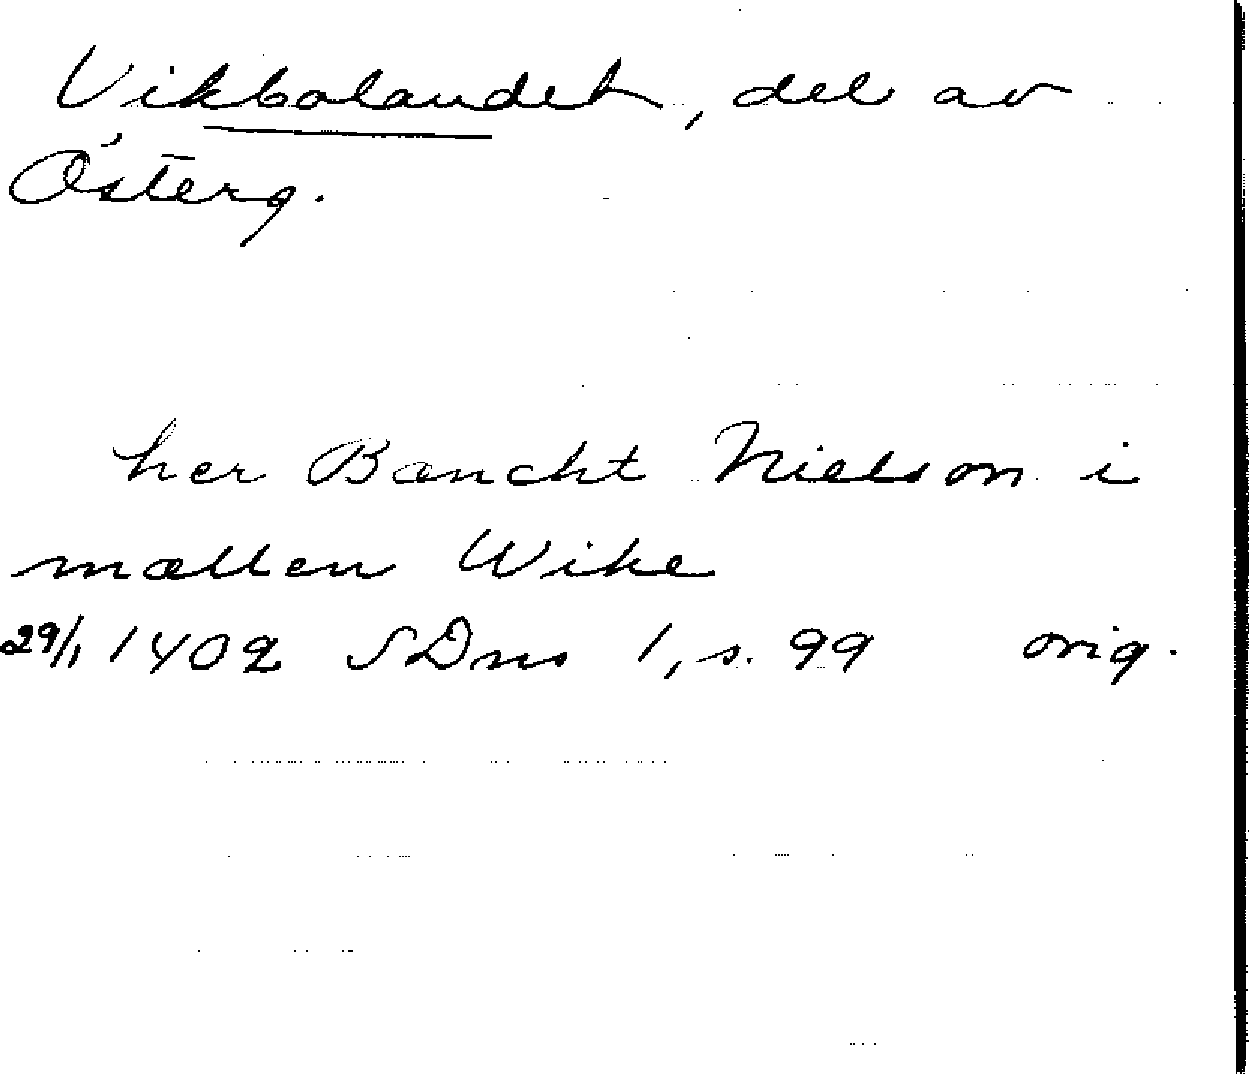 Vikbolandet, del av
Österg.
her Bæncht Nielson i
mællen Wike
29/1 1402 SDns 1, s. 99 orig.